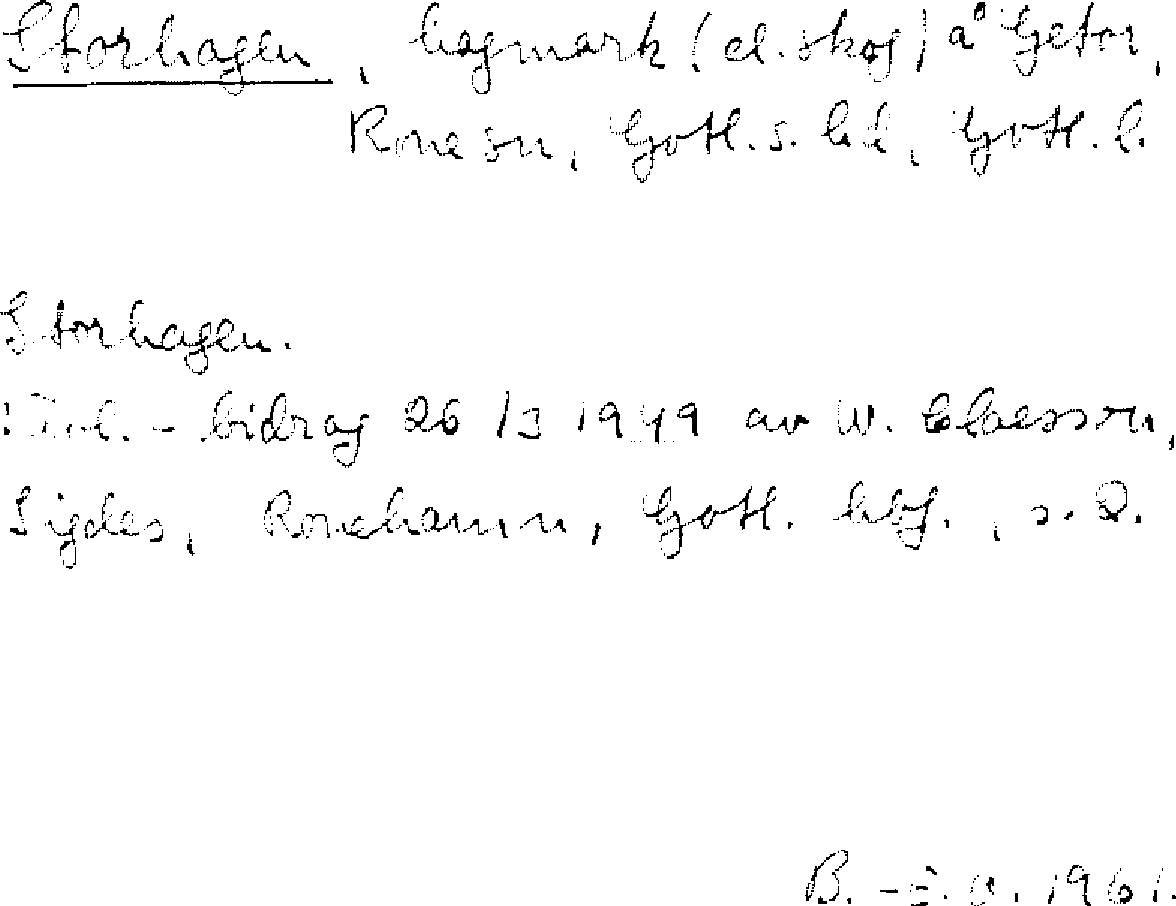 Storhagen, hagmark (el. skog) å Getor,
Rone sn, Gotl. s. hd, Gotl. l.
Storhagen.
bidrag 26/3 1949 av W. Claesson,
Sigdes, Ronehamn, Gotl. hbf., s. 2.
B. 1961.